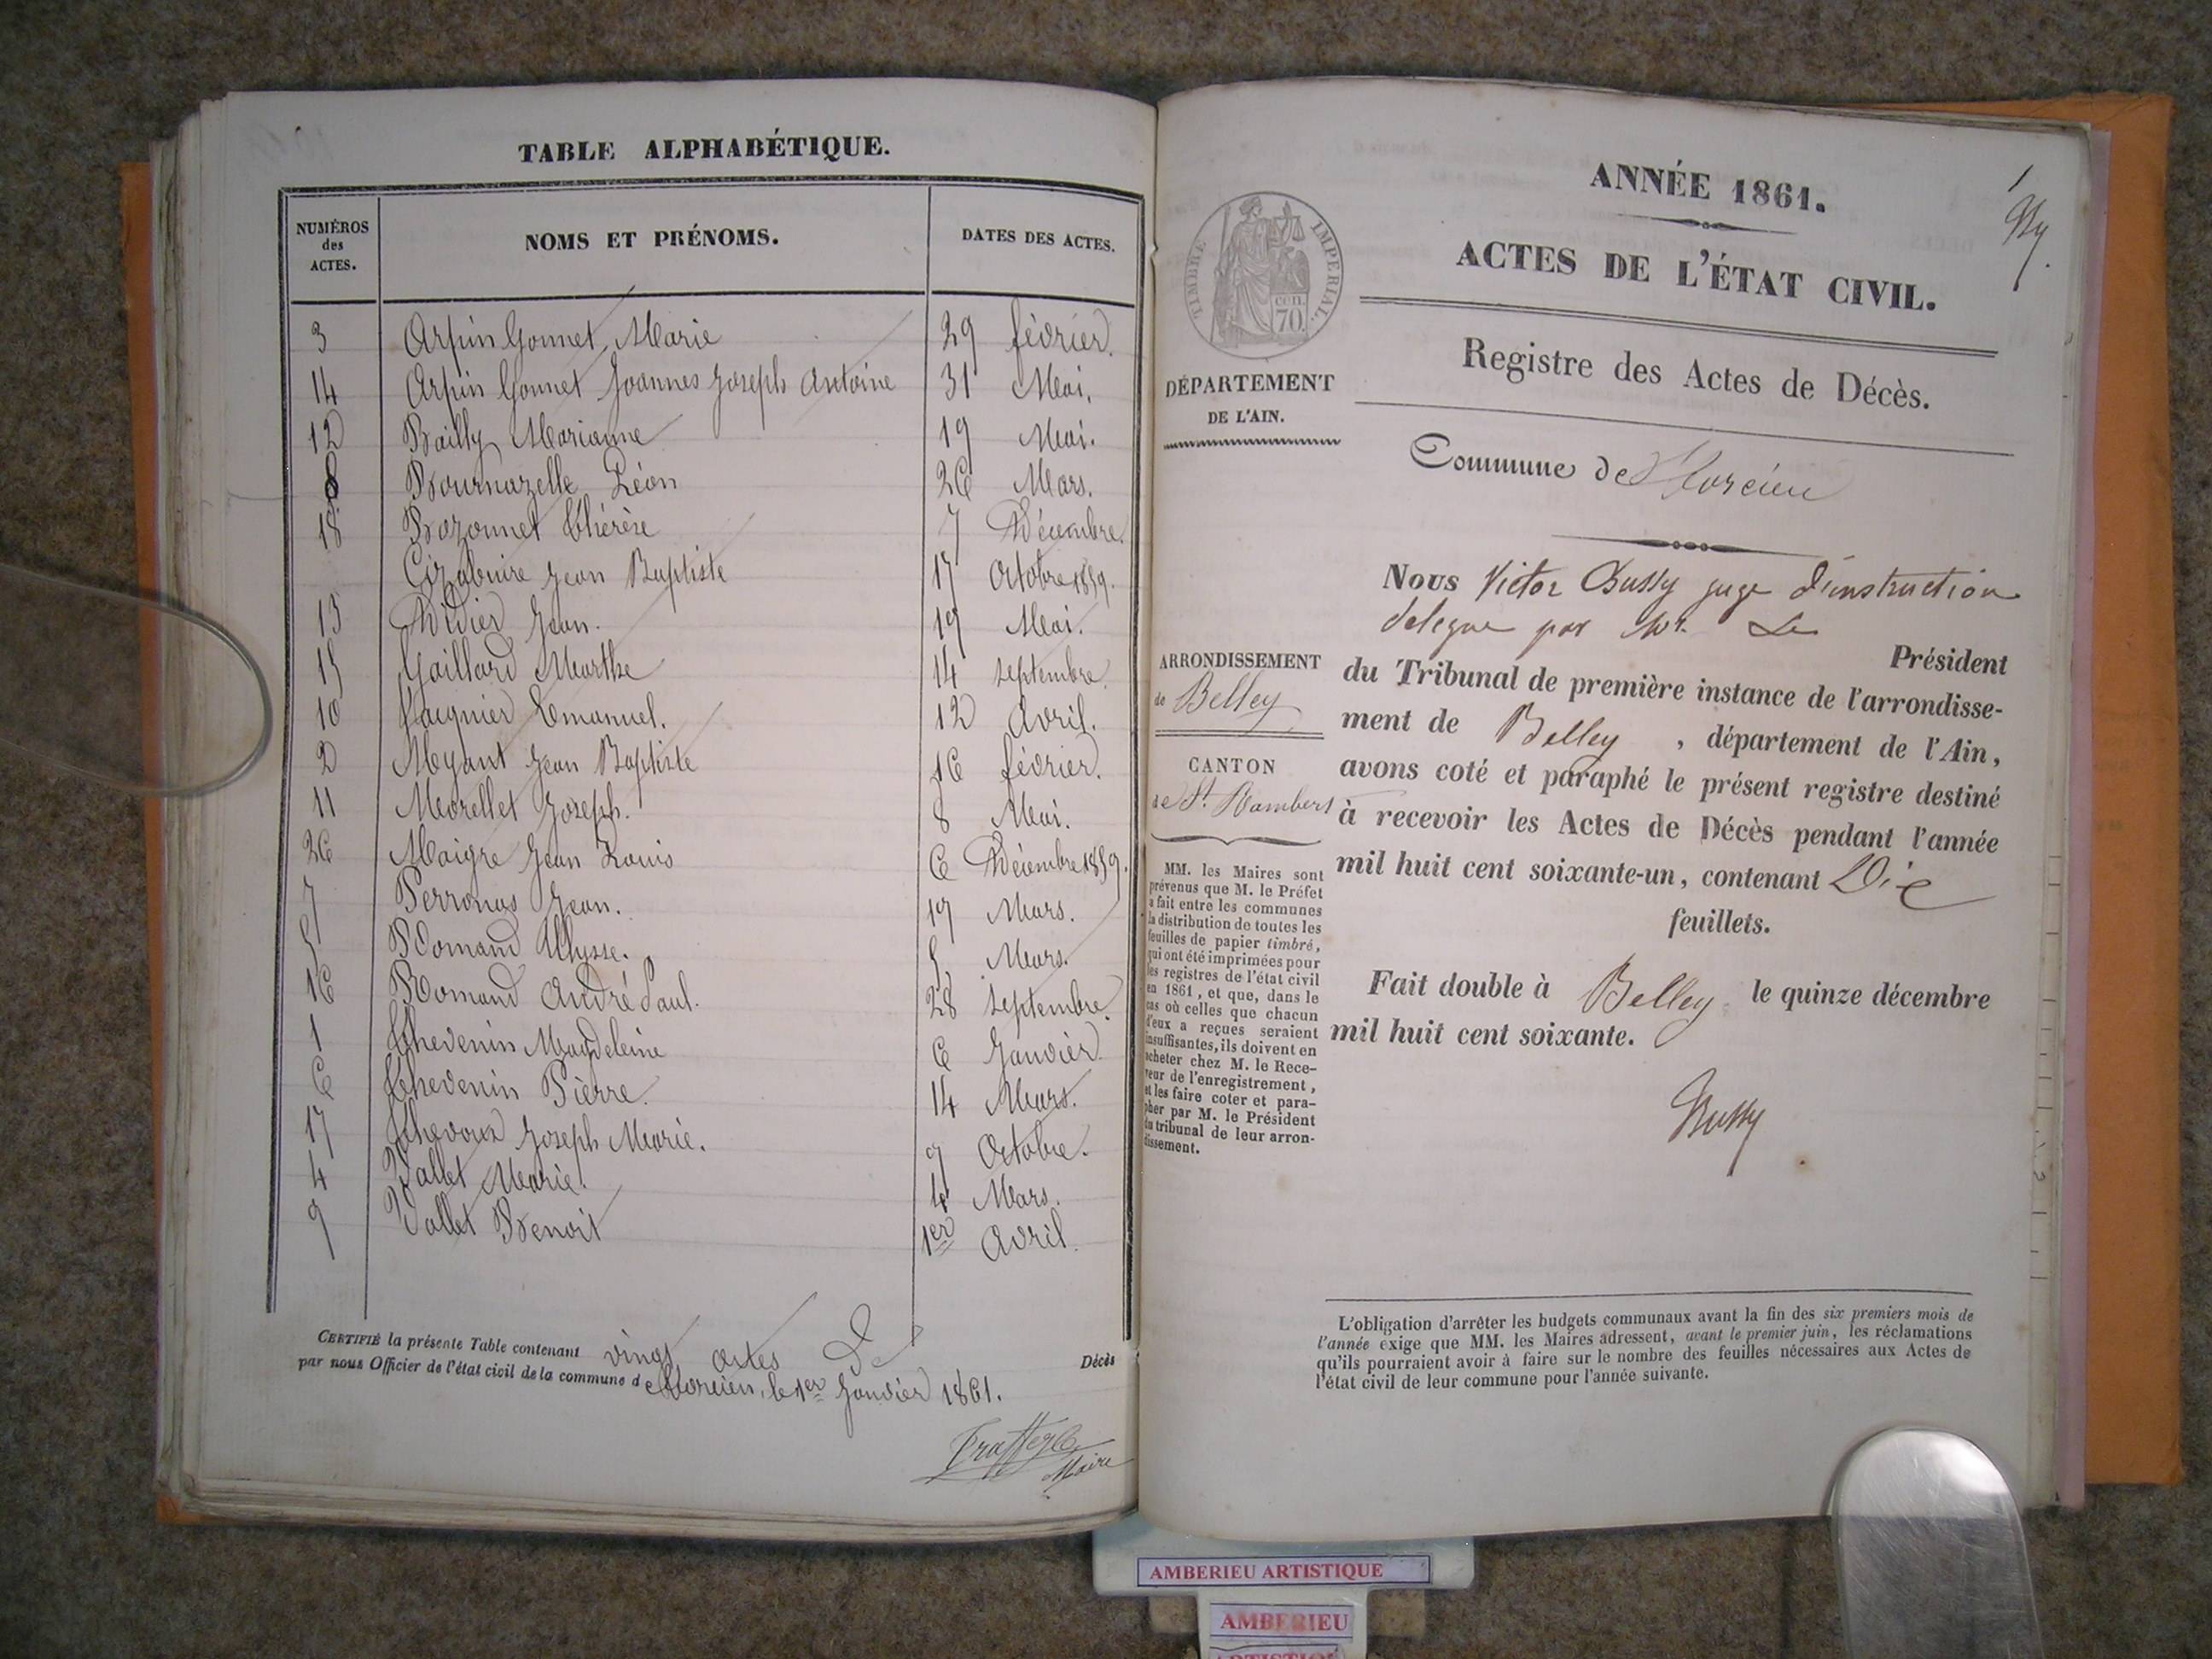 TABLE ALPHABÉTIQUE.
NUMÉROS des ACTES. NOMS ET PRÉNOMS. DATES DES ACTES.
3 Arpin Gonnet Marie 29 février.
14 Arpin Gonnet Joannes Joseph Antoine 31 Mai.
12 Bailly Marianne 19 Mai.
8 Bournazelle Léon 26 Mars.
18 Bozonnet Thérèse 7 Décembre.
Jean Baptiste 17 Octobre 1859.
13 Didier Jean. 19 Mai.
15 Gaillard Marthe 14 septembre.
10 Emanuel. 12 Avril.
2 Moyant Jean Baptiste 16 février.
11 Morellet Joseph. 8 Mai.
26 Maigre Jean Louis 6 Décembre 1859.
7 Perronas Jean. 19 Mars.
5 Romand Ulysse. 5 Mars.
16 Romand André Paul. 28 septembre.
1 Thevenin Magdeleine 6 Janvier.
6 Thevenin Pierre. 14 Mars.
17 Joseph Marie. 9 Octobre.
4 Vallet Marie. 4 Mars.
9 Vallet Benoit 1er Avril.
CERTIFIÉ la présente Table contenant vingt actes de Décès
par nous Officier de l'état civil de la commune d le 1er Janvier 1861.
Maire
ANNÉE 1861.
1
By.
ACTES DE L'ÉTAT CIVIL.
TIMBRE IMPÉRIAL.
70 cen.
Registre des Actes de Décès.
DÉPARTEMENT
DE L'AIN.
Commune de
Nous Victor Bussy juge d'instruction
délégué par Mr. Le
Président
ARRONDISSEMENT
de Belley
du Tribunal de première instance de l'arrondisse-
ment de Belley, département de l'Ain,
CANTON
de St. Rambert
avons coté et paraphé le présent registre destiné
à recevoir les Actes de Décès pendant l'année
mil huit cent soixante-un, contenant Dix
feuillets.
MM. les Maires sont
prévenus que M. le Préfet
a fait entre les communes
la distribution de toutes les
feuilles de papier timbré,
qui ont été imprimées pour
les registres de l'état civil
en 1861, et que, dans le
cas où celles que chacun
d'eux a reçues seraient
insuffisantes, ils doivent en
acheter chez M. le Rece-
veur de l'enregistrement,
et les faire coter et para-
pher par M. le Président
du tribunal de leur arron-
dissement.
Fait double à Belley le quinze décembre
mil huit cent soixante.
Bussy
L'obligation d'arrêter les budgets communaux avant la fin des six premiers mois de
l'année exige que MM. les Maires adressent, avant le premier juin, les réclamations
qu'ils pourraient avoir à faire sur le nombre des feuilles nécessaires aux Actes de
l'état civil de leur commune pour l'année suivante.
AMBERIEU ARTISTIQUE
AMBERIEU
ARTISTIQUE